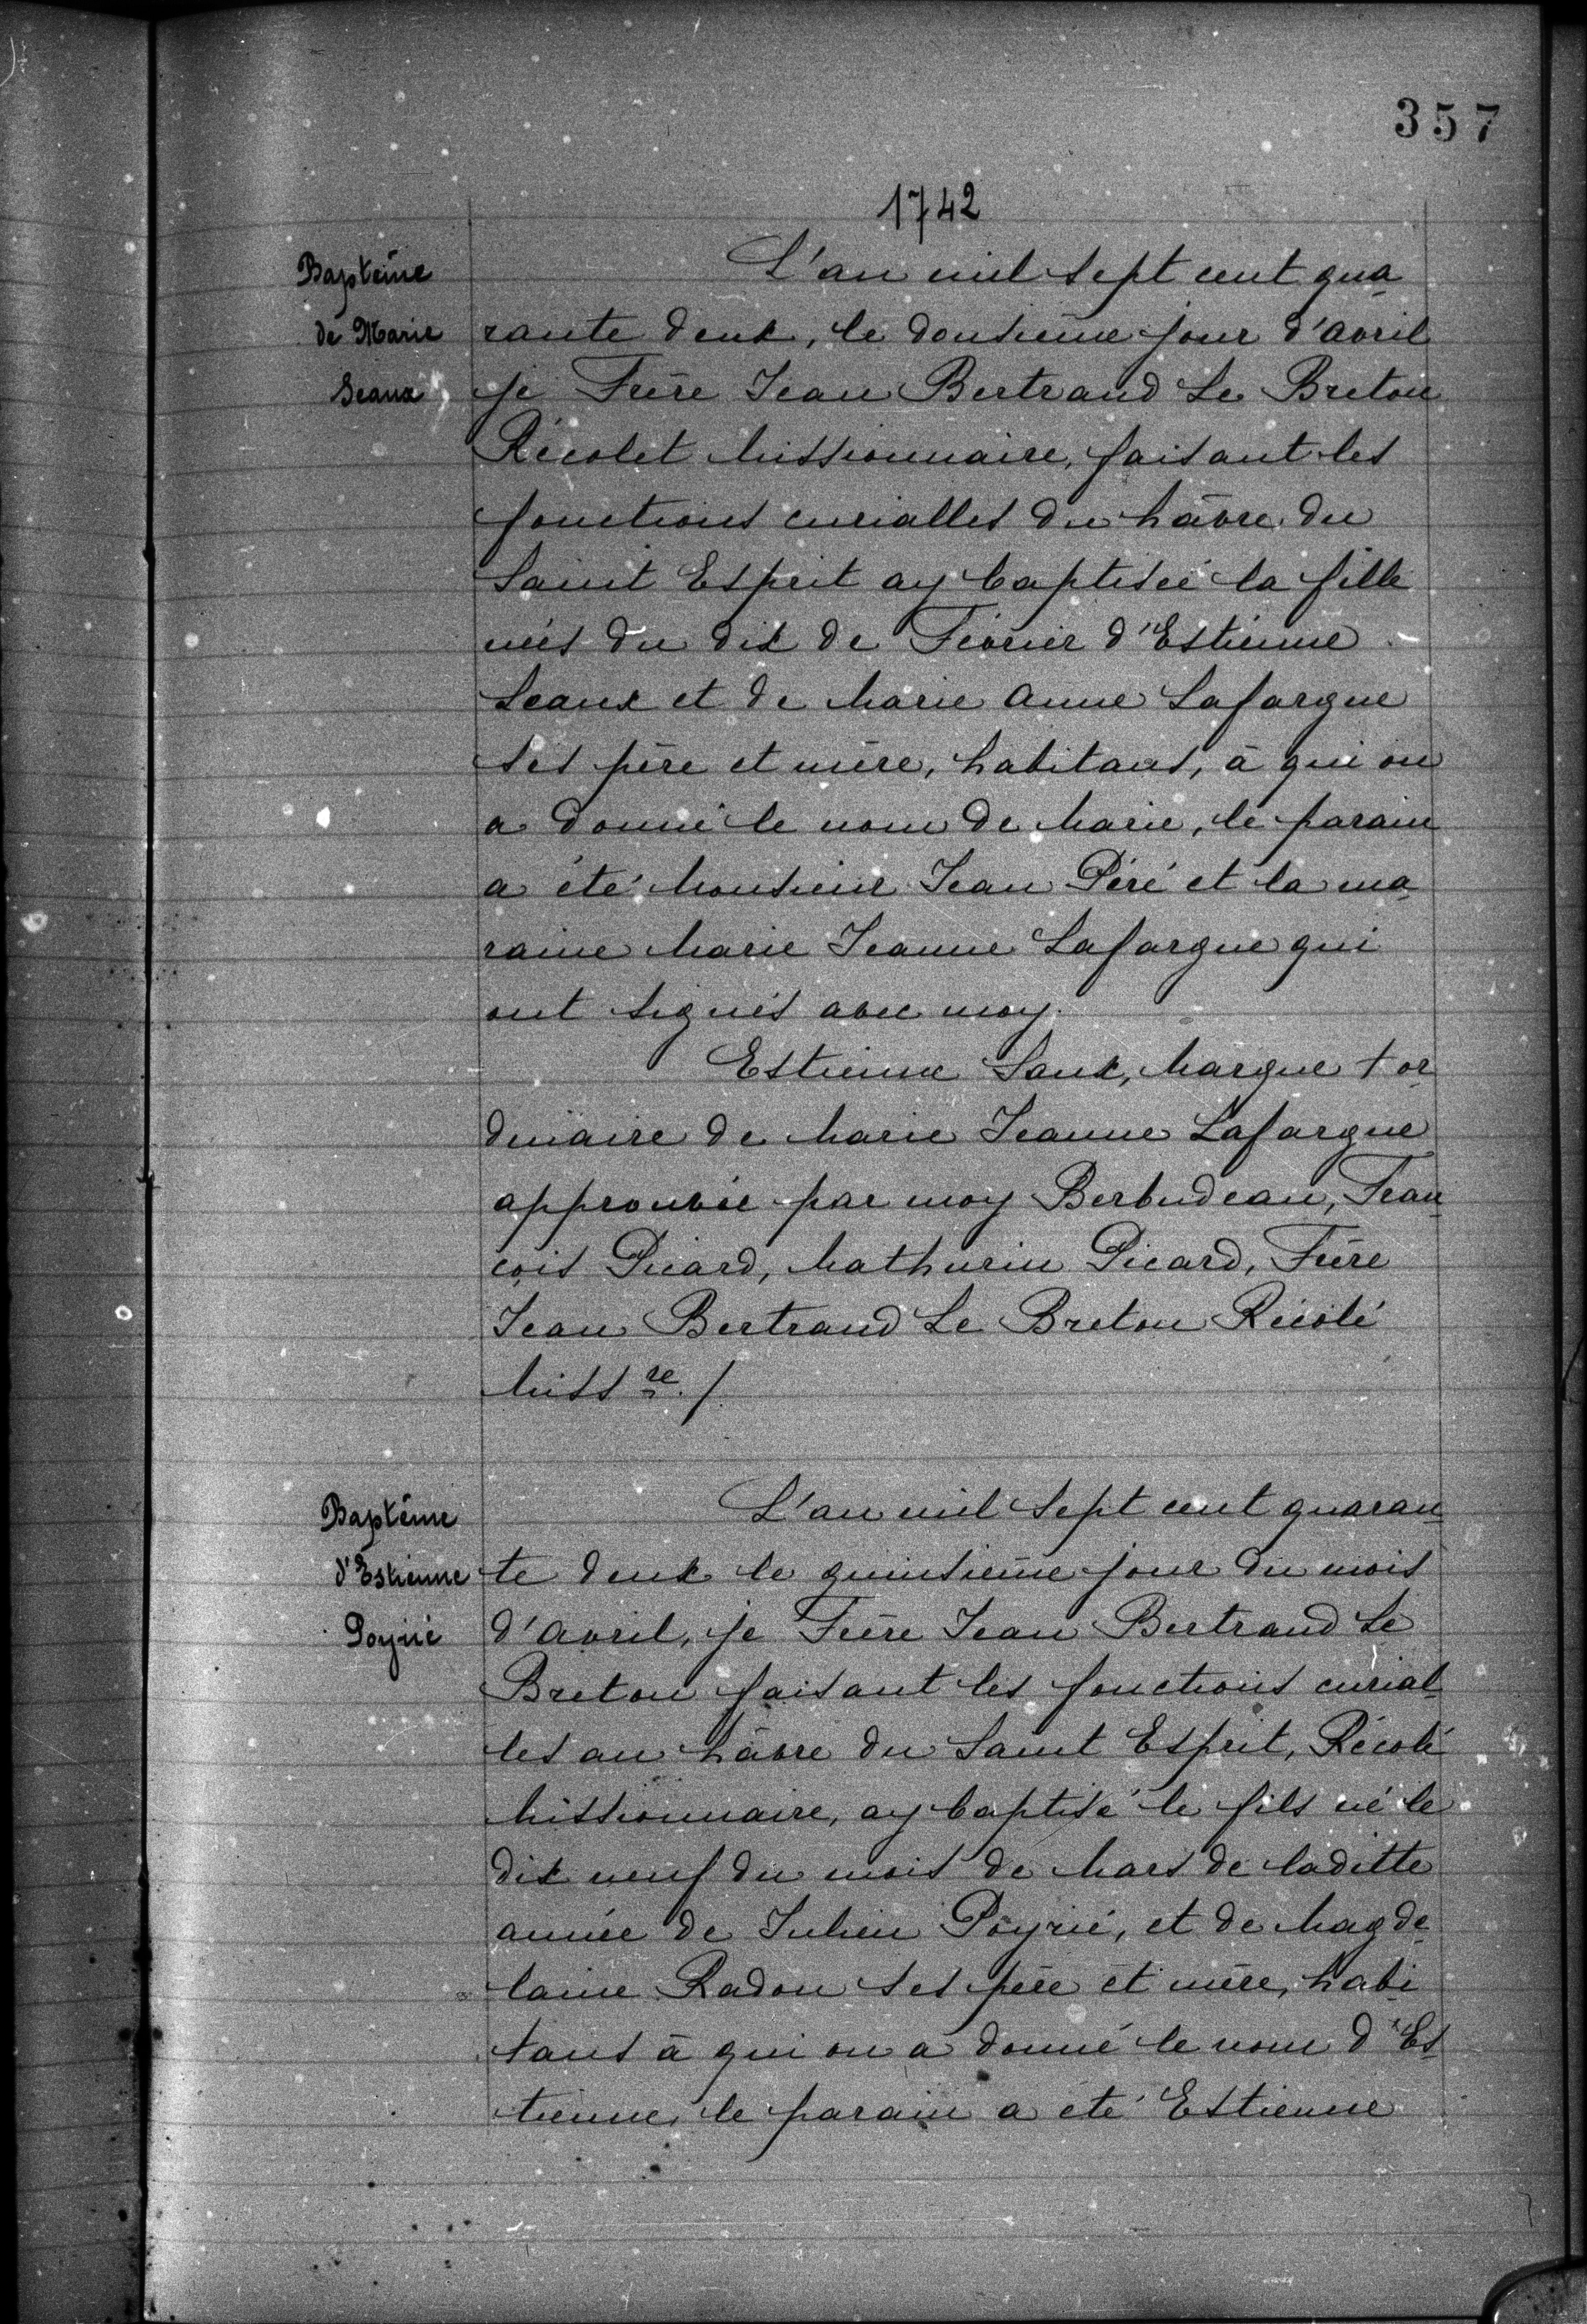 357
1742
Baptême
de Marie
Seaux
L'an mil sept cent qua
rante deux, le dousième jour d'avril
je Frère Jean Bertrand Le Breton
Récolet Missionnaire, faisant les
fonctions curialles du hâvre du
Saint Esprit ay baptisée la fille
nées du dix de Février d'Estienne
Seaux et de Marie Anne Lafargue
ses père et mère, habitans, à qui on
a donné le nom de Marie, le parain
a été Monsieur Jean Péré et la ma
raine Marie Jeanne Lafargue qui
ont signés avec moy.
Estienne Saux, Marque + or
dinaire de Marie Jeanne Lafargue
approuvée par moy Berbudeau, Fran
çois Picard, Mathurin Picard, Frère
Jean Bertrand Le Breton Récolé
Miss re ./.
Baptême
d'Estienne
Poyrié
L'an mil sept cent quaran
te deux le quinsième jour du mois
d'avril, je Frère Jean Bertrand Le
Breton faisant les fonctions curial
les au hâvre du Saint Esprit, Récolé
Missionnaire, ay baptisé le fils né le
dix neuf du mois de Mars de laditte
année de Julien Poyrié, et de Magde
laine Radou ses père et mère, habi
tans à qui on a donné le nom d'Es
tienne, le parain a été Estienne